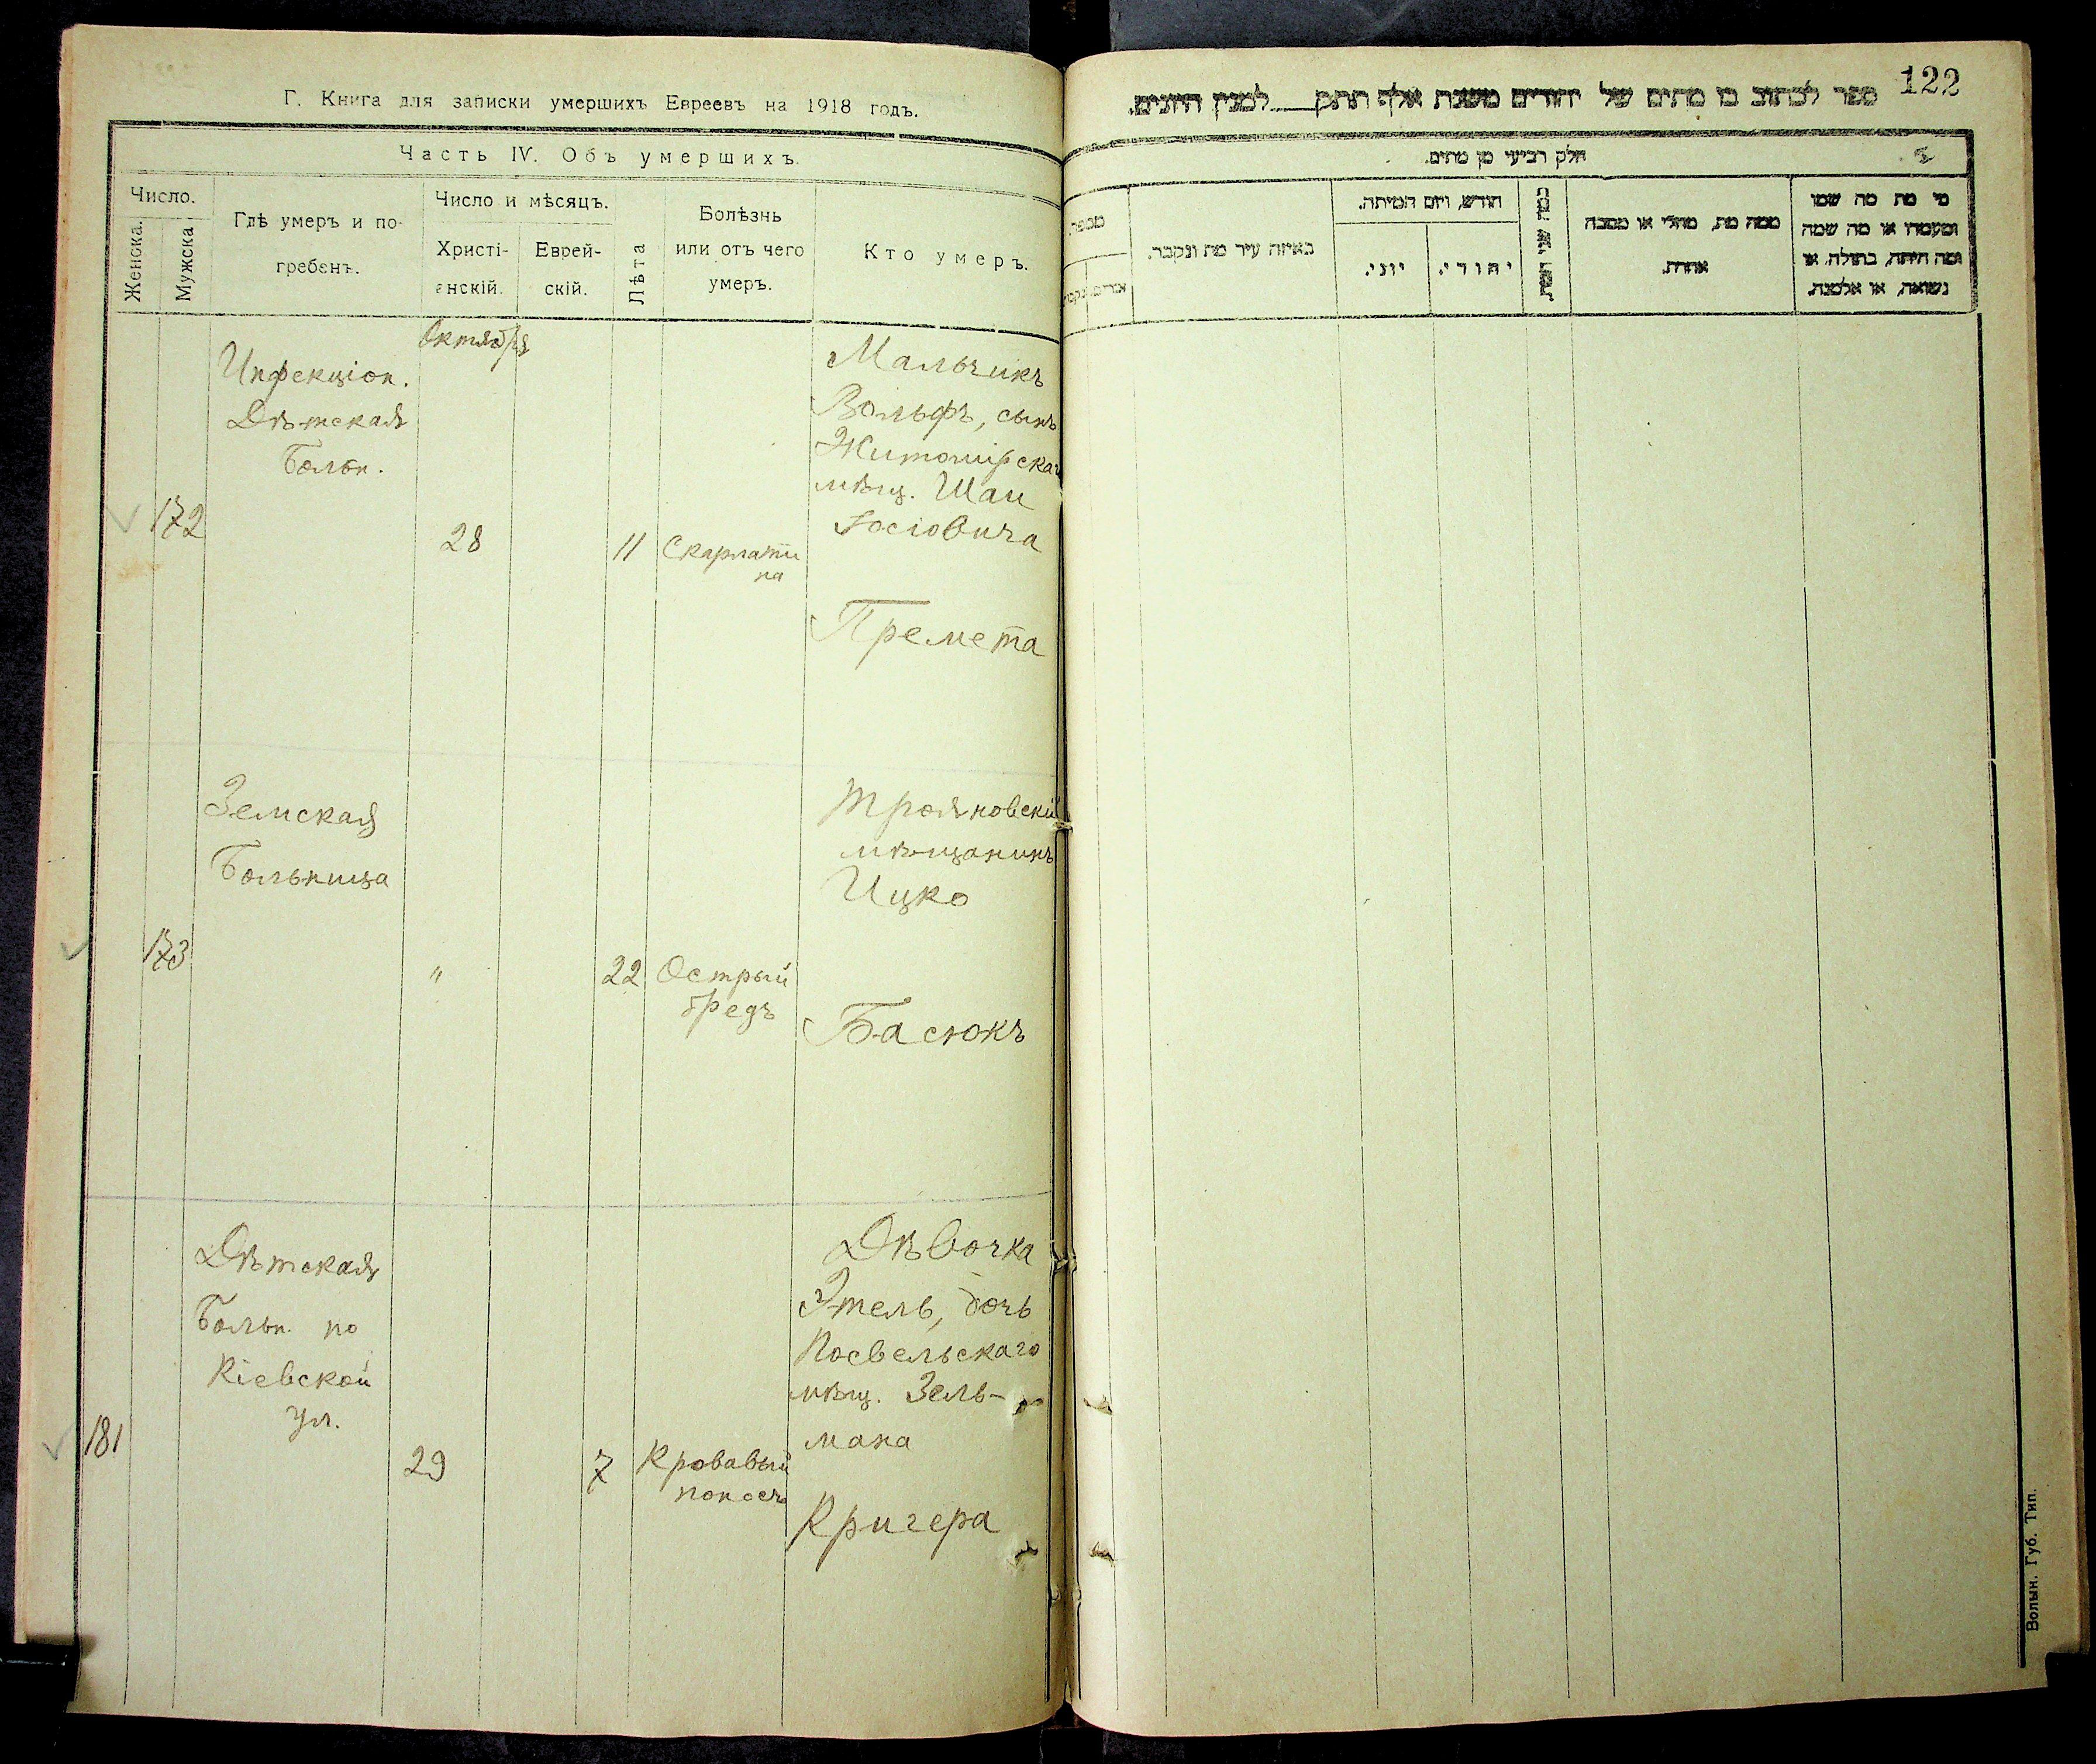 Г. Книга для записки умершихъ Евреевъ на 1918 годъ.
Часть IV. Объ умершихъ.
Число.
Женска.
Мужска
Гдѣ умеръ и по-
гребенъ.
Число и мѣсяцъ.
Христі-
анскій.
Еврей-
скій.
Лѣта
Болѣзнь
или отъ чего
умеръ.
Кто умеръ.
Октября
172
Инфекціон.
Дѣтская
Больн.
28
11
Скарлати
на
Мальчикъ
Вольфъ, сынъ
Житомірскаг
мѣщ. Шаи
Іосіовича
Премета
173
Земская
Больница
"
22
Острый
бредъ
Трояновскій
мѣщанинъ
Ицко
Басюкъ
181
Дѣтская
Больн. по
Кіевской
ул.
29
7
Кровавый
поносъ
Дѣвочка
Этель, дочь
Посвельскаго
мѣщ. Зель-
мана
Кригера
122
ספר לכתוב בו מתים של יהודים משנת אלף תתק למנין היונים.
חלק רביעי מן מתים.
מספר
באיזה עיר מת ונקבר.
חודש, ויום המיתה.
יהודי.
יוני.
ממה מת, מחלי או מסבה
אחרת.
מי מת מה שמו
ומעמדו או מה שמה
ומה היתה, בתולה, או
נשואה, או אלמנה.
Волын. Губ. Тип.